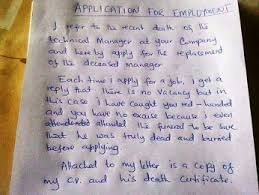 APPLICATION FOR EMPLOYMENT
I refer to the recent death of the
technical Manager at your Company
and hereby apply for the replacement
of the deceased manager.
Each time I apply for a job, i get a
reply that there is no Vacancy but in
this case I have caught you red-handed
and you have no excuse because i even
attended the funeral to be sure
that he was truly dead and buried
before applying.
Attached to my letter is a copy of
my C.V. and his death Certificate.